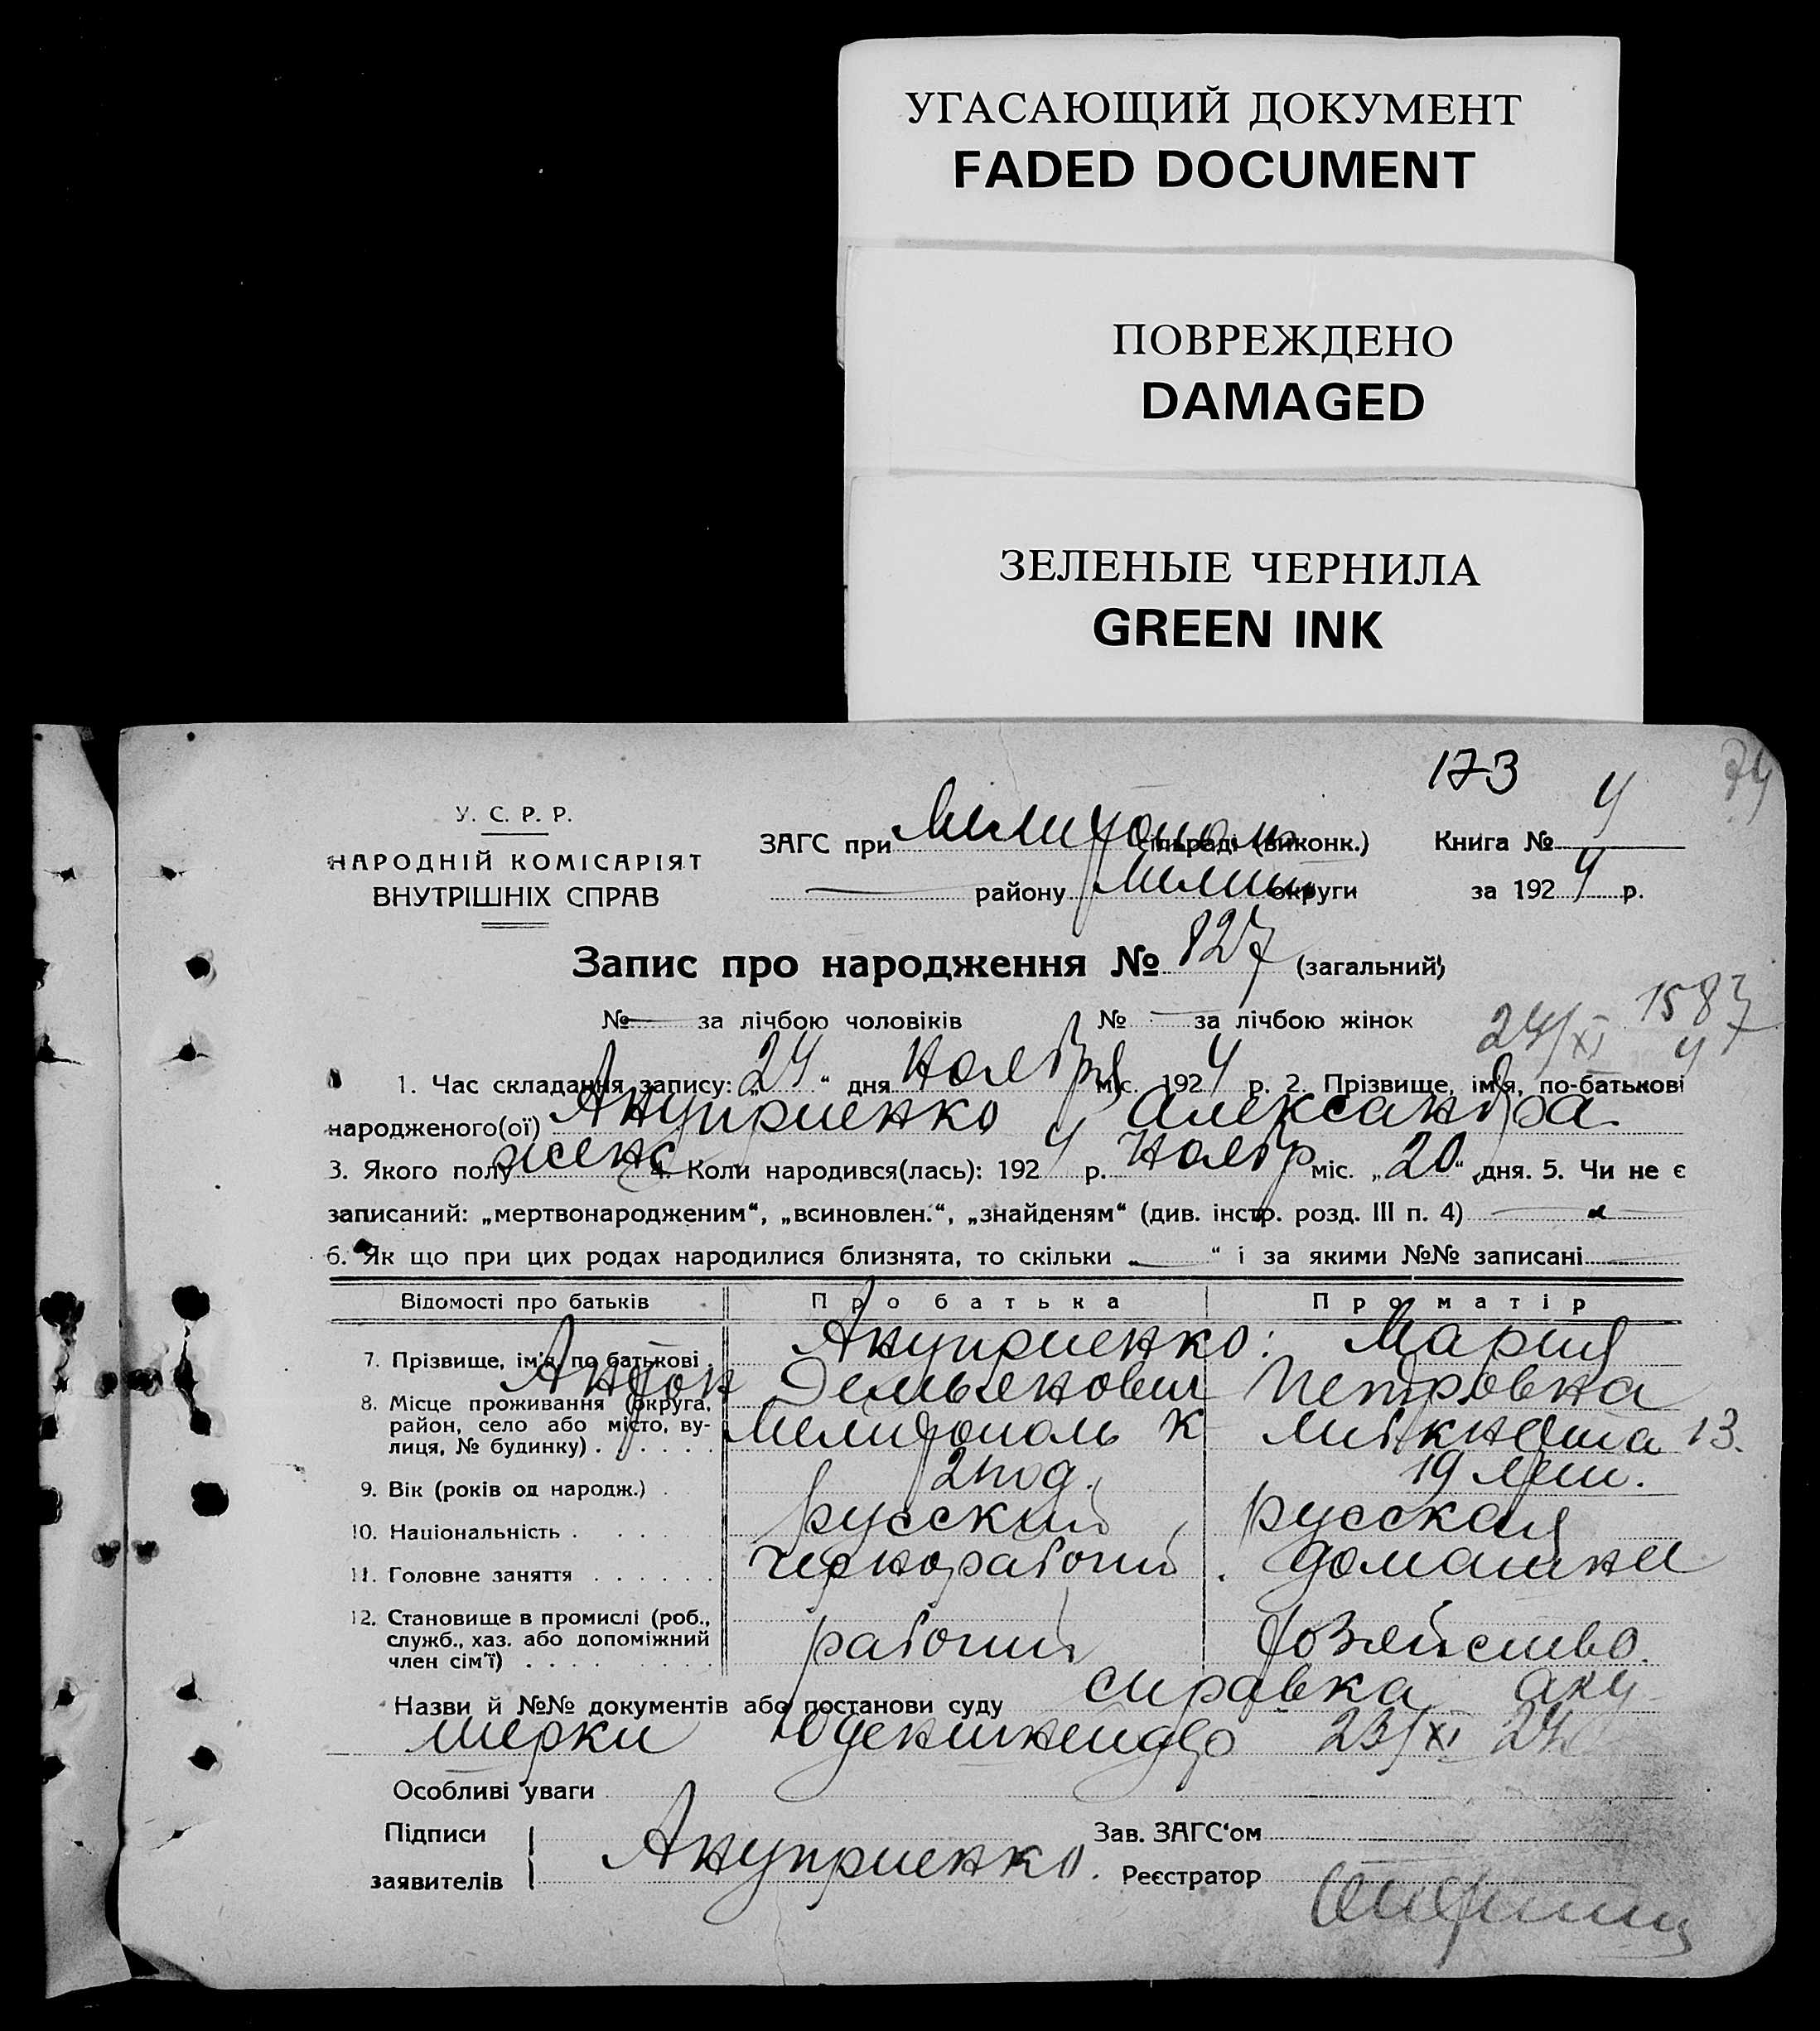 УГАСАЮЩИЙ ДОКУМЕНТ
FADED DOCUMENT
ПОВРЕЖДЕНО
DAMAGED
ЗЕЛЕНЫЕ ЧЕРНИЛА
GREEN INK
173
74
У. С. Р. Р.
НАРОДНІЙ КОМІСАРІЯТ
ВНУТРІШНІХ СПРАВ
ЗАГС при Мелитополь сільраді (виконк.) Книга № 4
району Мелит округи за 1924 р.
Запис про народження № 827 (загальний)
№ — за лічбою чоловіків № — за лічбою жінок
24/XI 1587
4
1. Час складання запису: „24“ дня Ноября міс. 1924 р. 2. Прізвище, ім'я, по-батькові
народженого(ої) Ануприенко Александра
3. Якого полу женс 4. Коли народився(лась): 1924 р. Ноябр міс. „20“ дня. 5. Чи не є
записаний: „мертвонародженим“, „всиновлен.“, „знайденям“ (див. інстр. розд. III п. 4) —
6. Як що при цих родах народилися близнята, то скільки „—“ і за якими №№ записані —
Відомості про батьків Про батька Про матір
7. Прізвище, ім'я, по батькові . Ануприенко: Мария
Антон Демьянович Петровна
8. Місце проживання (округа,
район, село або місто, ву-
лиця, № будинку) . . . . . . Мелитополь К 13.
9. Вік (років од народж.) . 19 лет.
10. Національність . . . . . русский русская
11. Головне заняття . . . . . . чернорабочий . домашнее
12. Становище в промислі (роб.,
служб., хаз. або допоміжний
член сім'ї) . . . . . . . . рабочий хозяйство.
Назви й №№ документів або постанови суду справка аку
шерки 23/XI 24
Особливі уваги
Підписи
заявителів Ануприенко.
Зав. ЗАГС'ом
Реєстратор